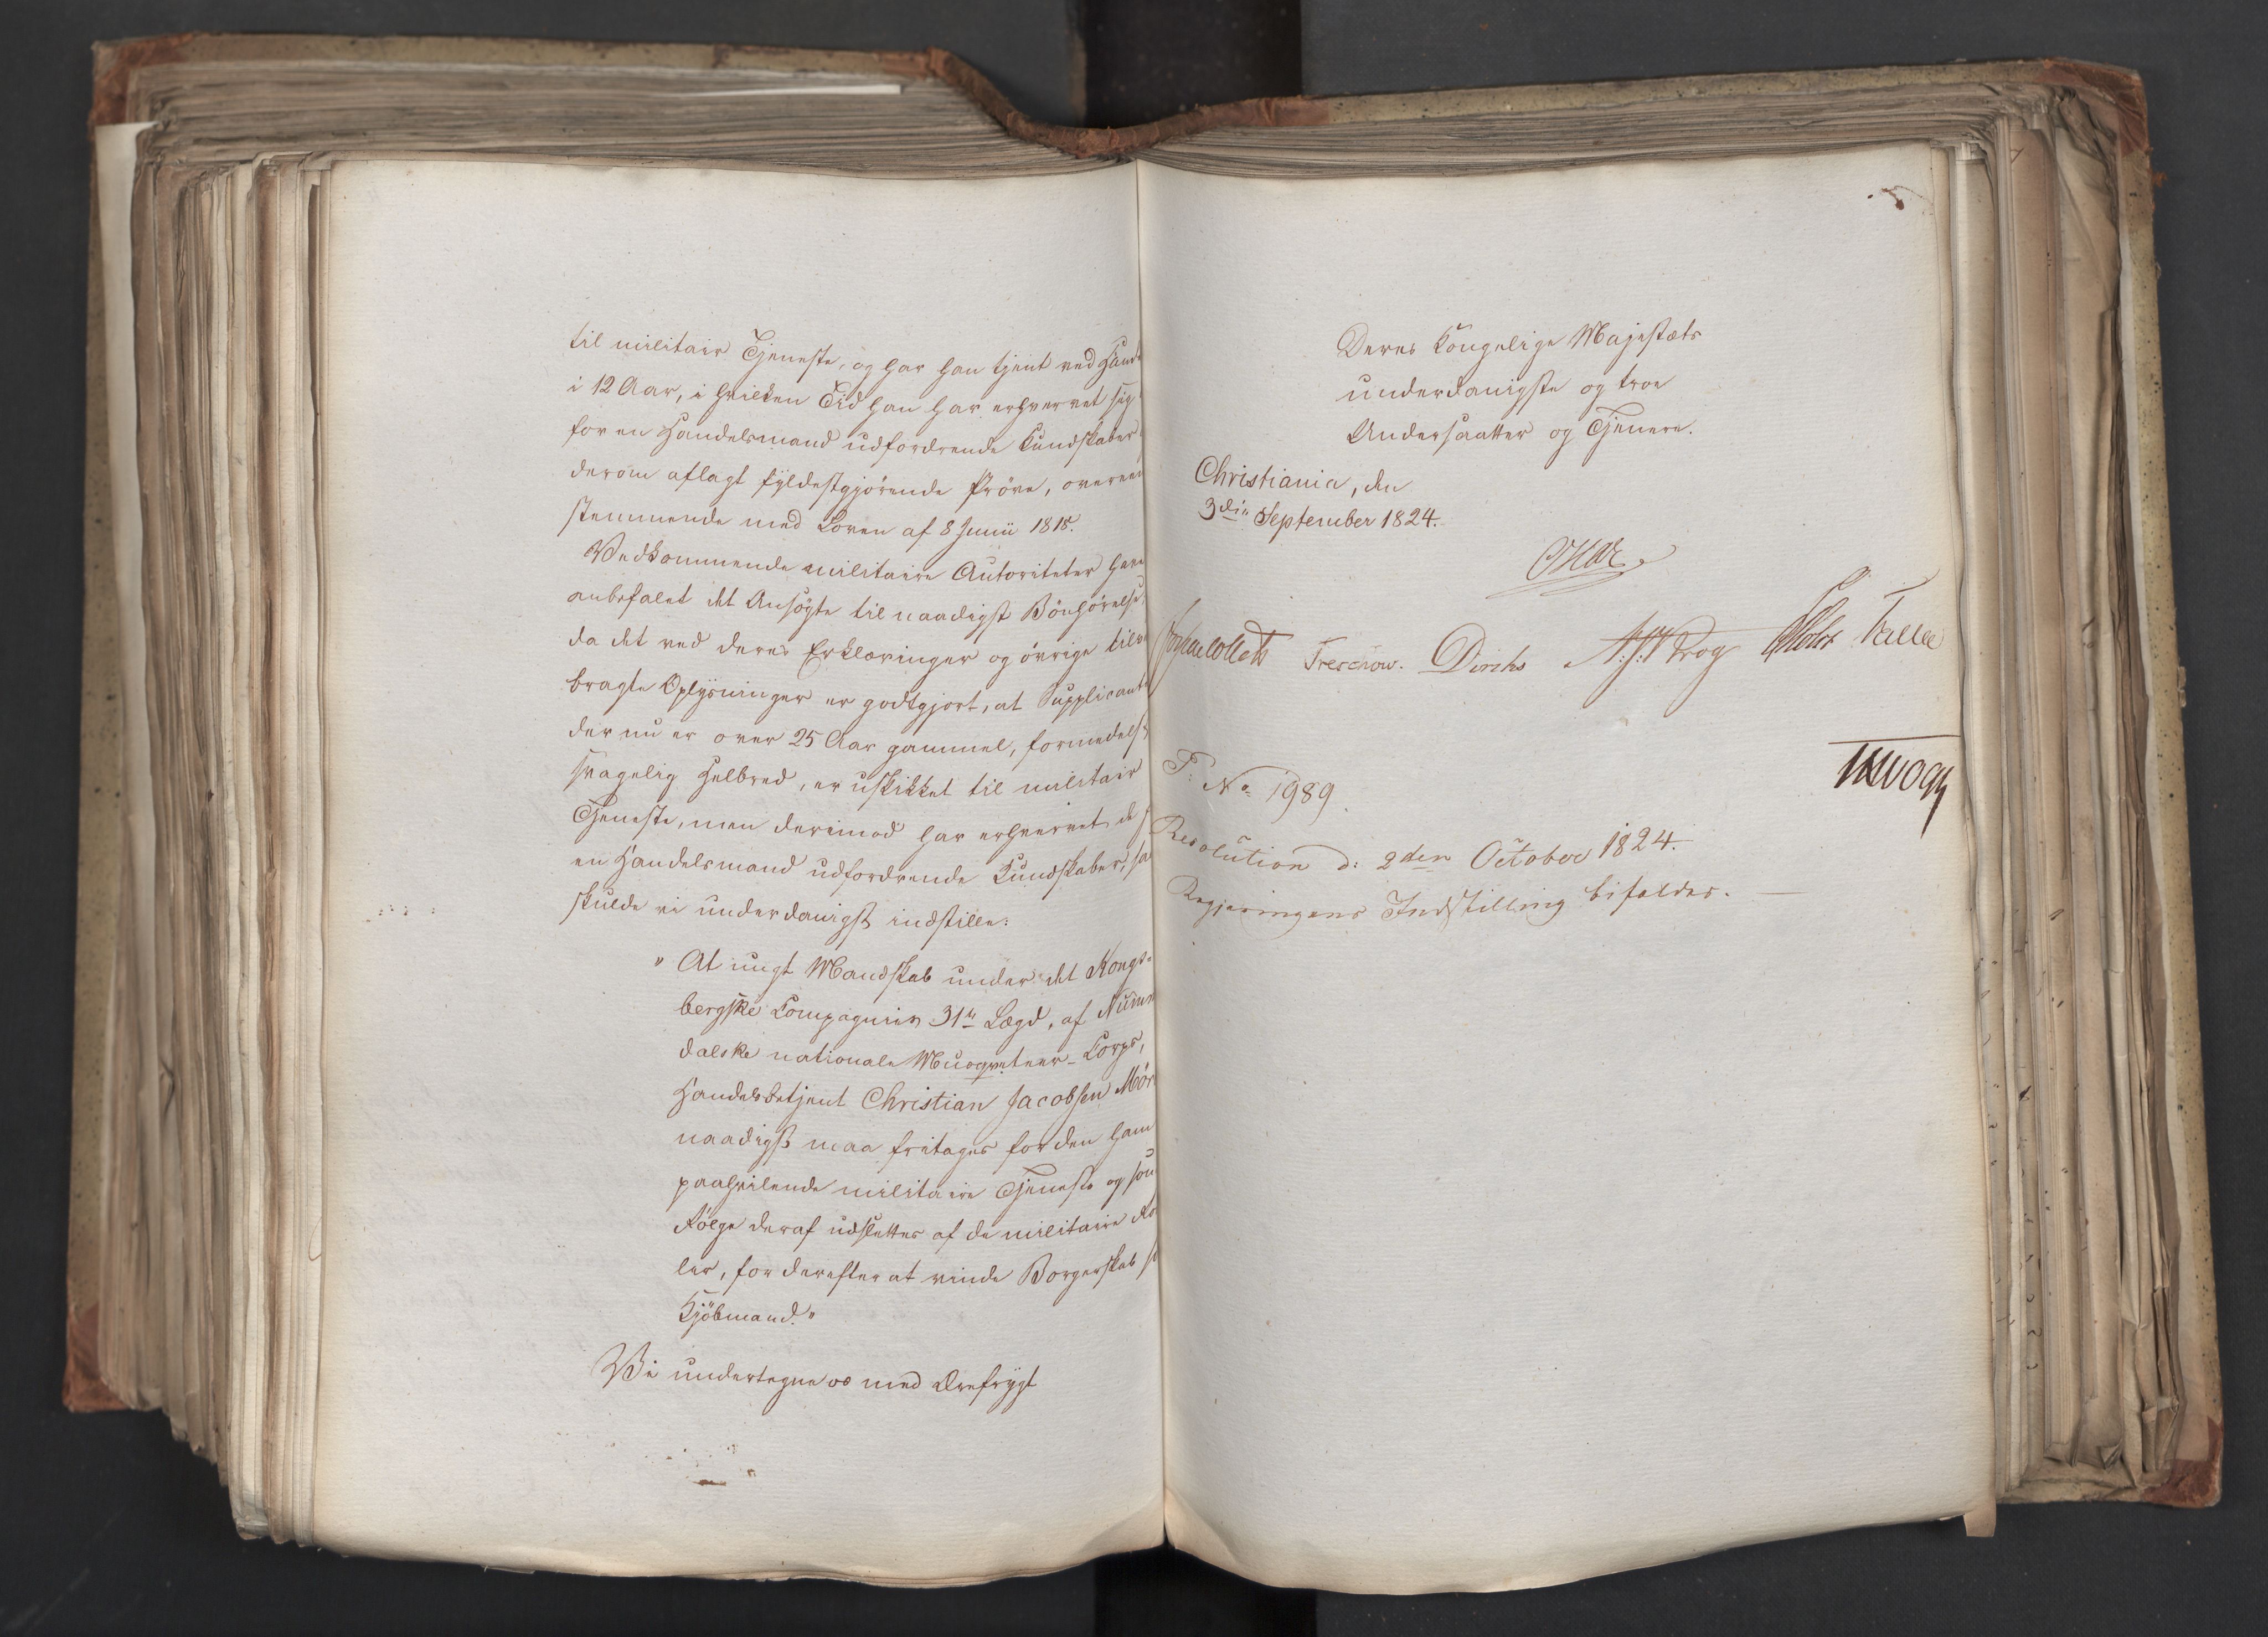 til militair Tjeneste, og har han tjent ved Hand
i 12 Aar, i hvilken Tid han har erhvervet sig
for en Handelsmand udfordrende Kundskaber
derom aflagt fyldestgjörende Pröve, overeen
stemmende med Loven af 8 Junii 1818.
Vedkommende militaire Autoriteter have
anbefalet det Ansögte til naadigst Bönhörelse,
da det ved deres Erklæringer og övrige tilve
bragte Oplysninger er godtgjort, at Supplicante
der nu er over 25 Aar gammel, formedelst
svagelig Helbred, er uskikket til militair
Tjeneste, men derimod har erhvervet de f
en Handelsmand udfordrende Kundskaber, saa
skulde vi underdanigst indstille:
"At ungt Mandskab under det Kongs-
bergske Compagnies 31te Lægd, af Numme
dalske nationale Musqueteer-Corps,
Handelsbetjent Christian Jacobsen Mör
naadigst maa fritages for den ham
paahvilende militaire Tjeneste og som
Fölge deraf udslettes af de militaire Ro
ler, for derefter at vinde Borgerskab s
Kjöbmand."
Vi undertegne os med Ærefrygt
Deres Kongelige Majestæts
underdanigste og troe
Undersaatter og Tjenere.
Christiania, den
3die September 1824.
Jonas Collett Treschow. Diriks Krog Motzfeldt Fasting
P: No 1989.
Resolution d: 2den October 1824.
Regjeringens Indstilling bifaldes.